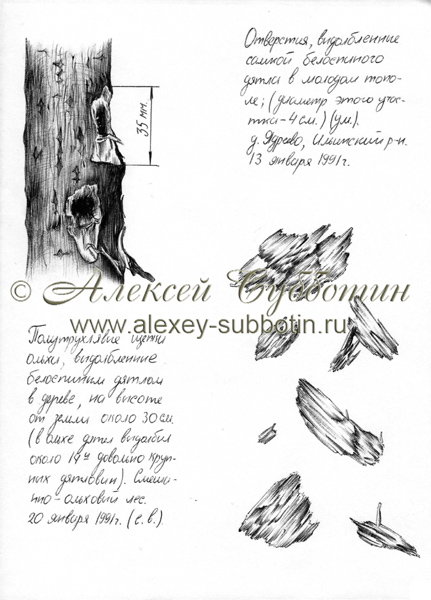 Отверстия, выдолбленные
самкой белоспинного
дятла в молодом топо-
ле; (диаметр этого учас-
тка - 4 см.) (ум.).
д. Ядреево, Ильинский р-н.
13 января 1991г.
35 мм.
© Алексей Субботин
www.alexey-subbotin.ru
Полутрухлявые щепки
ольхи, выдолбленные
белоспинным дятлом
в дереве, на высоте
от земли около 30 см.
(в ольхе дятел выдолбил
около 14 довольно круп-
ных дятловин). Смеша-
нно-ольховый лес.
20 января 1991г. (е.в.).